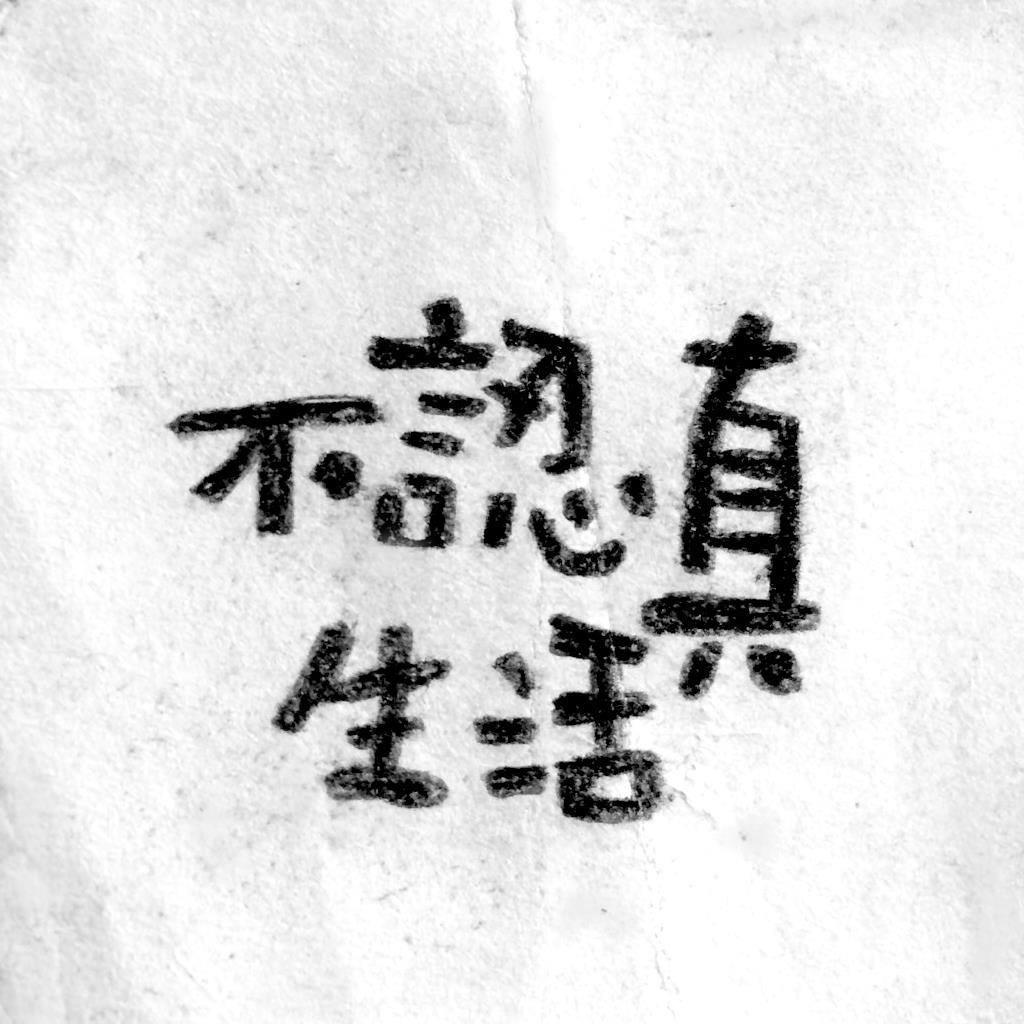 不認真
生活